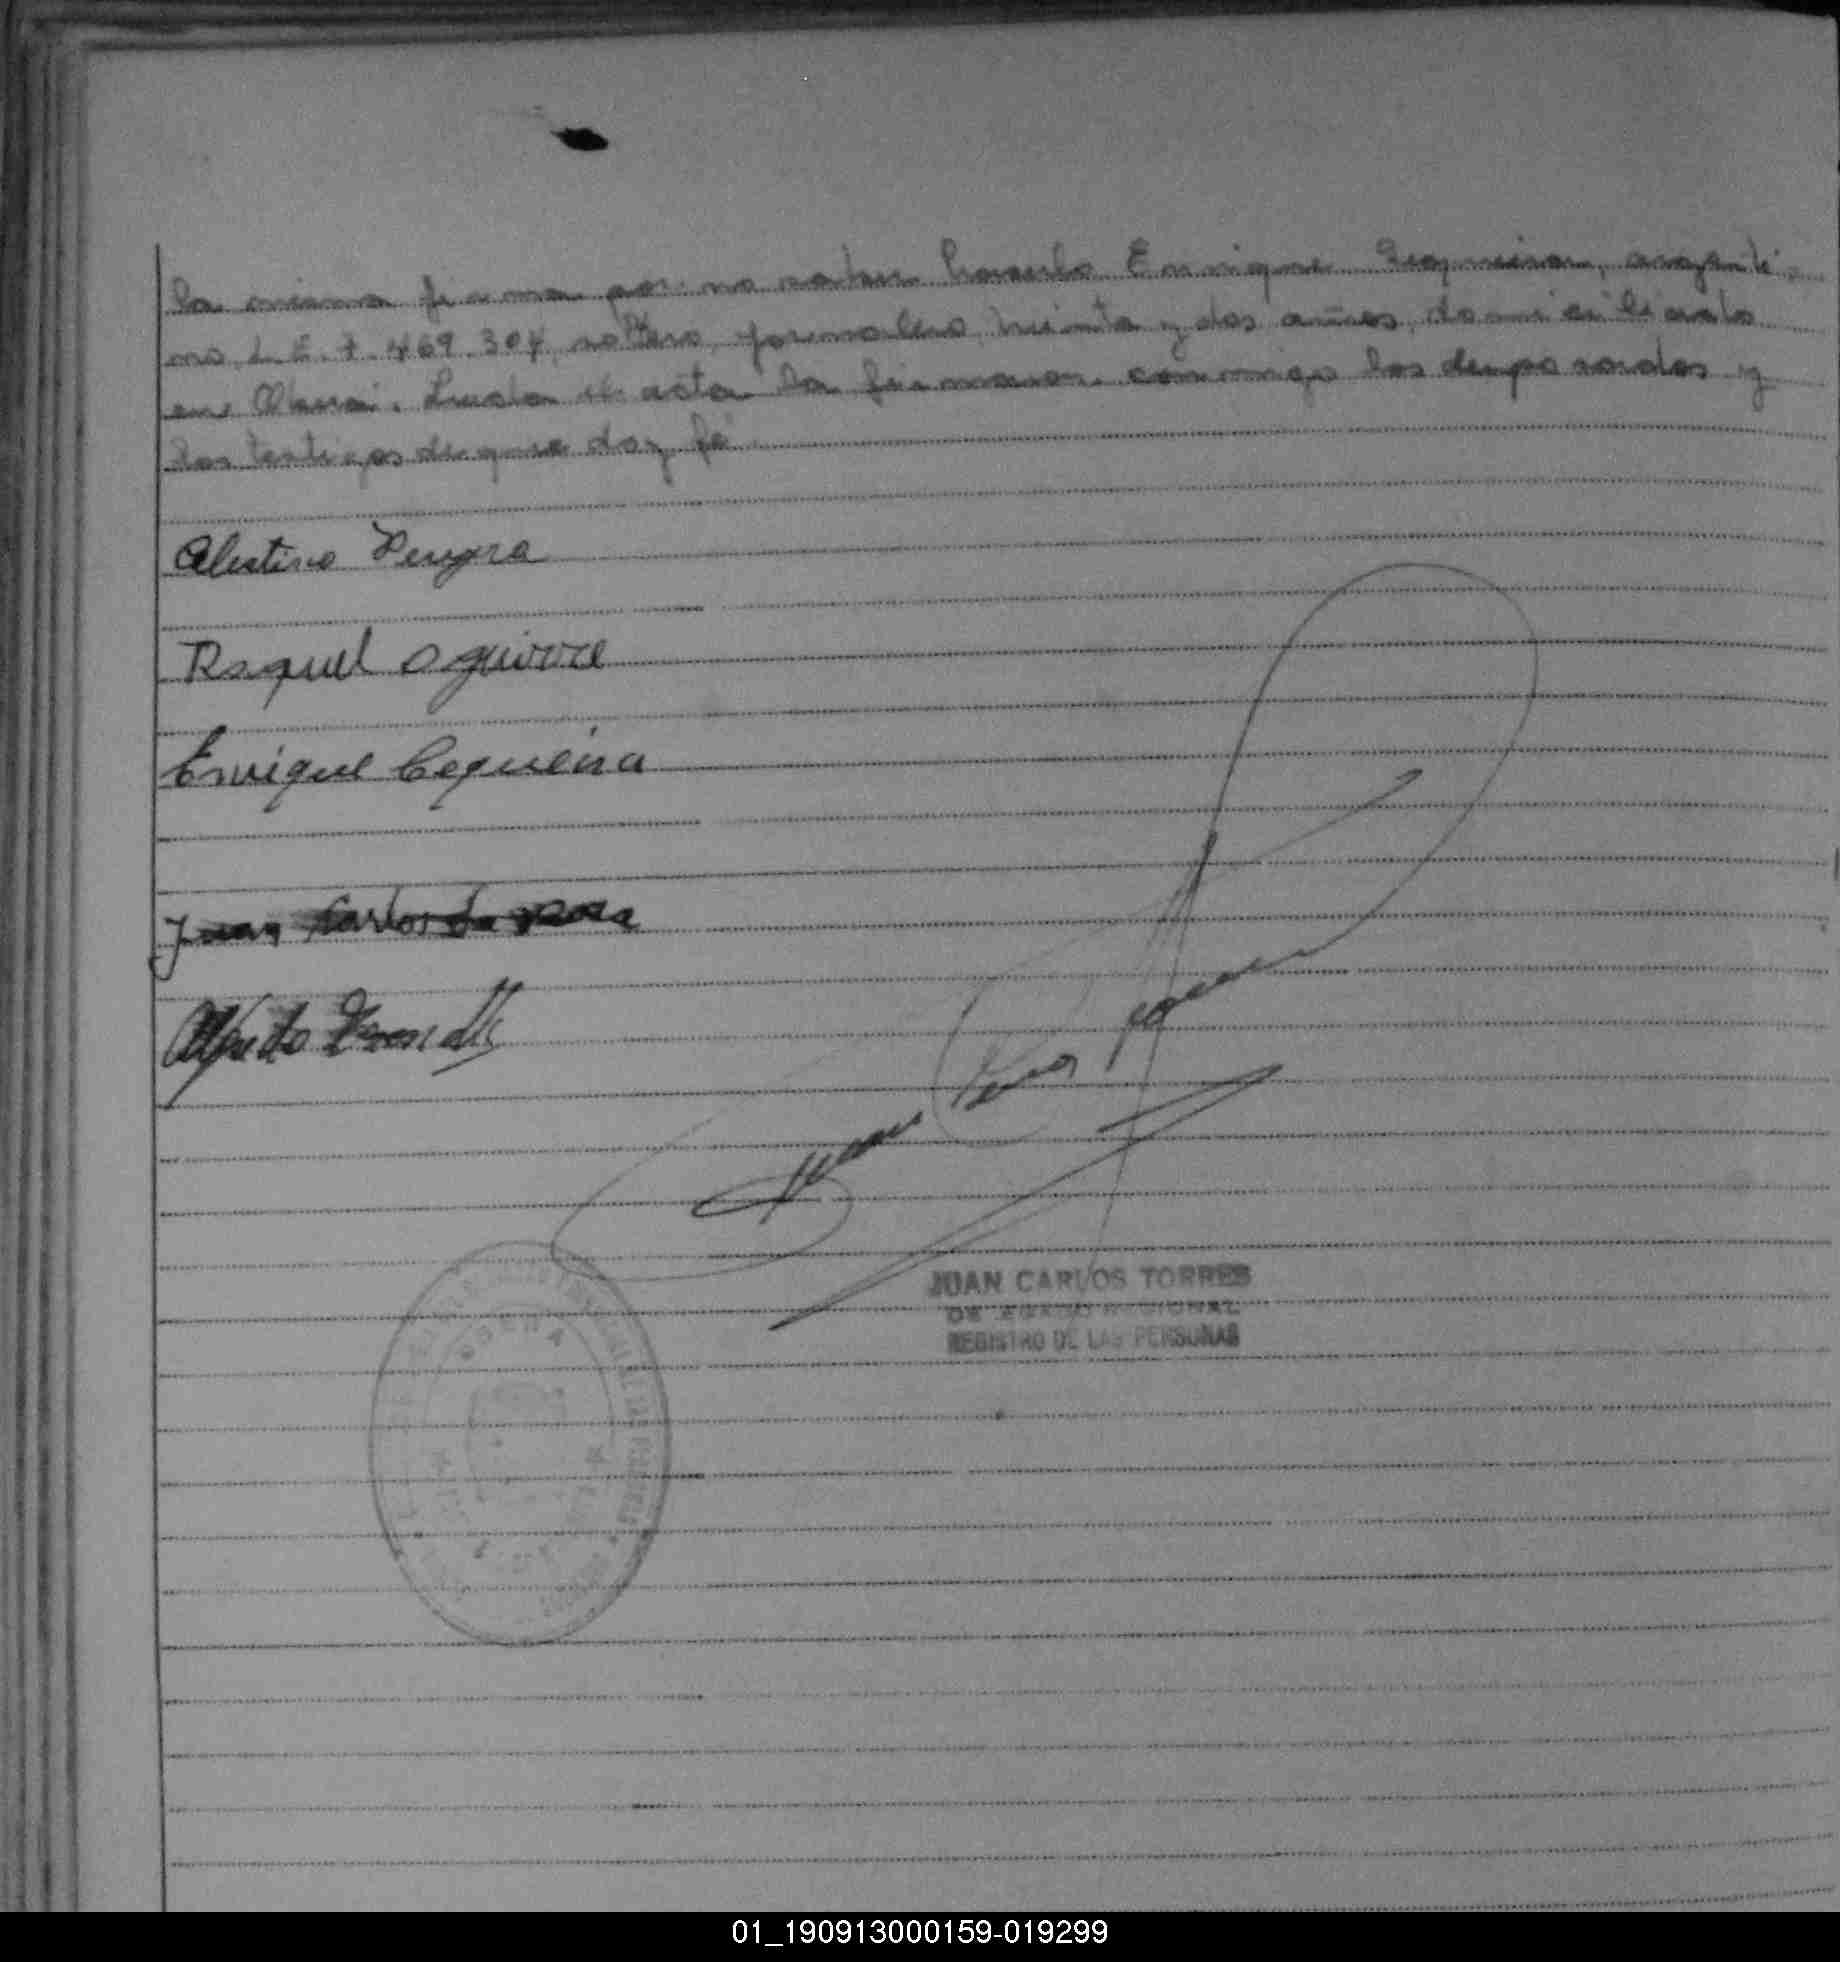 la misma firma por no saber hacerlo Enrique Sequeira, argenti-
no, L.E. 7.469.304, soltero, jornalero, treinta y dos años, domiciliado
en Oberá. Leida el acta la firmaron conmigo los desposados y
los testigos de que doy fé
Celestino Pereyra
Raquel Aguirre
Enrique Cequeira
Juan Carlos Da Rosa
Alfredo
JUAN CARLOS TORRES
REGISTRO DE LAS PERSONAS
OBERA
01_190913000159-019299